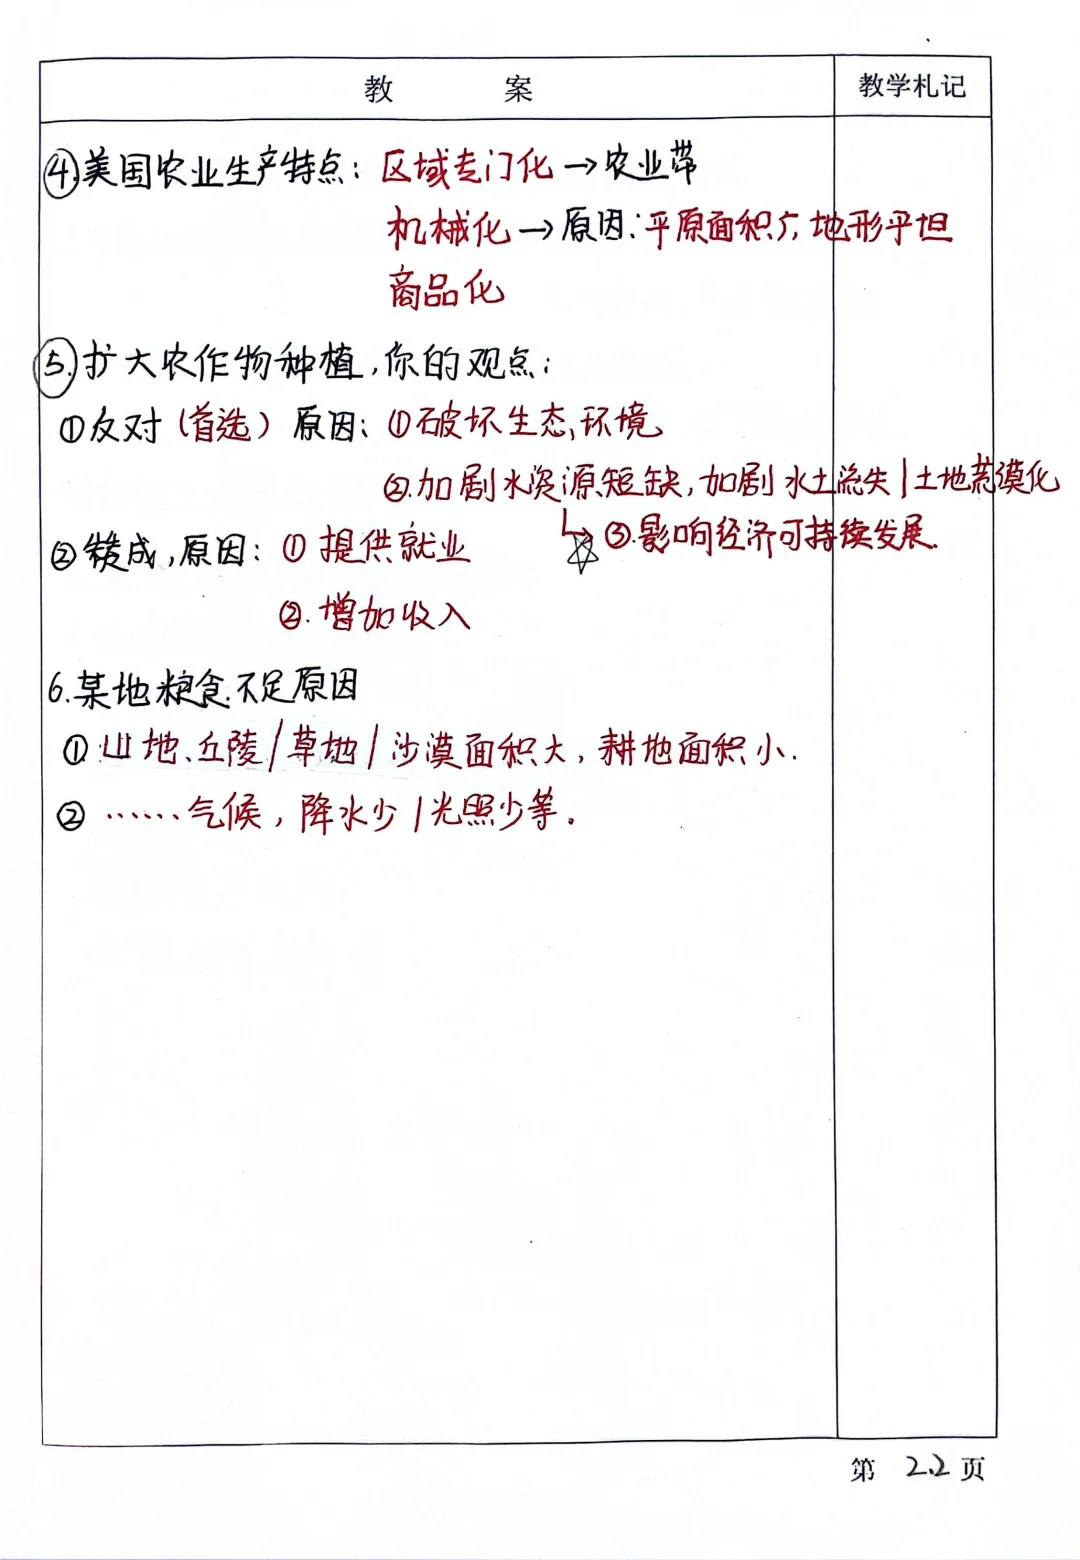 教 案 教学札记
④.美国农业生产特点：区域专门化→农业带
机械化→原因：平原面积广，地形平坦
商品化
⑤.扩大农作物种植，你的观点：
①反对（首选）原因：①破坏生态、环境
②.加剧水资源短缺，加剧水土流失/土地荒漠化
③.影响经济可持续发展.
②赞成，原因：①提供就业
②.增加收入
6.某地粮食不足原因
①.山地、丘陵/草地/沙漠面积大，耕地面积小.
②……气候，降水少/光照少等.
第 22 页